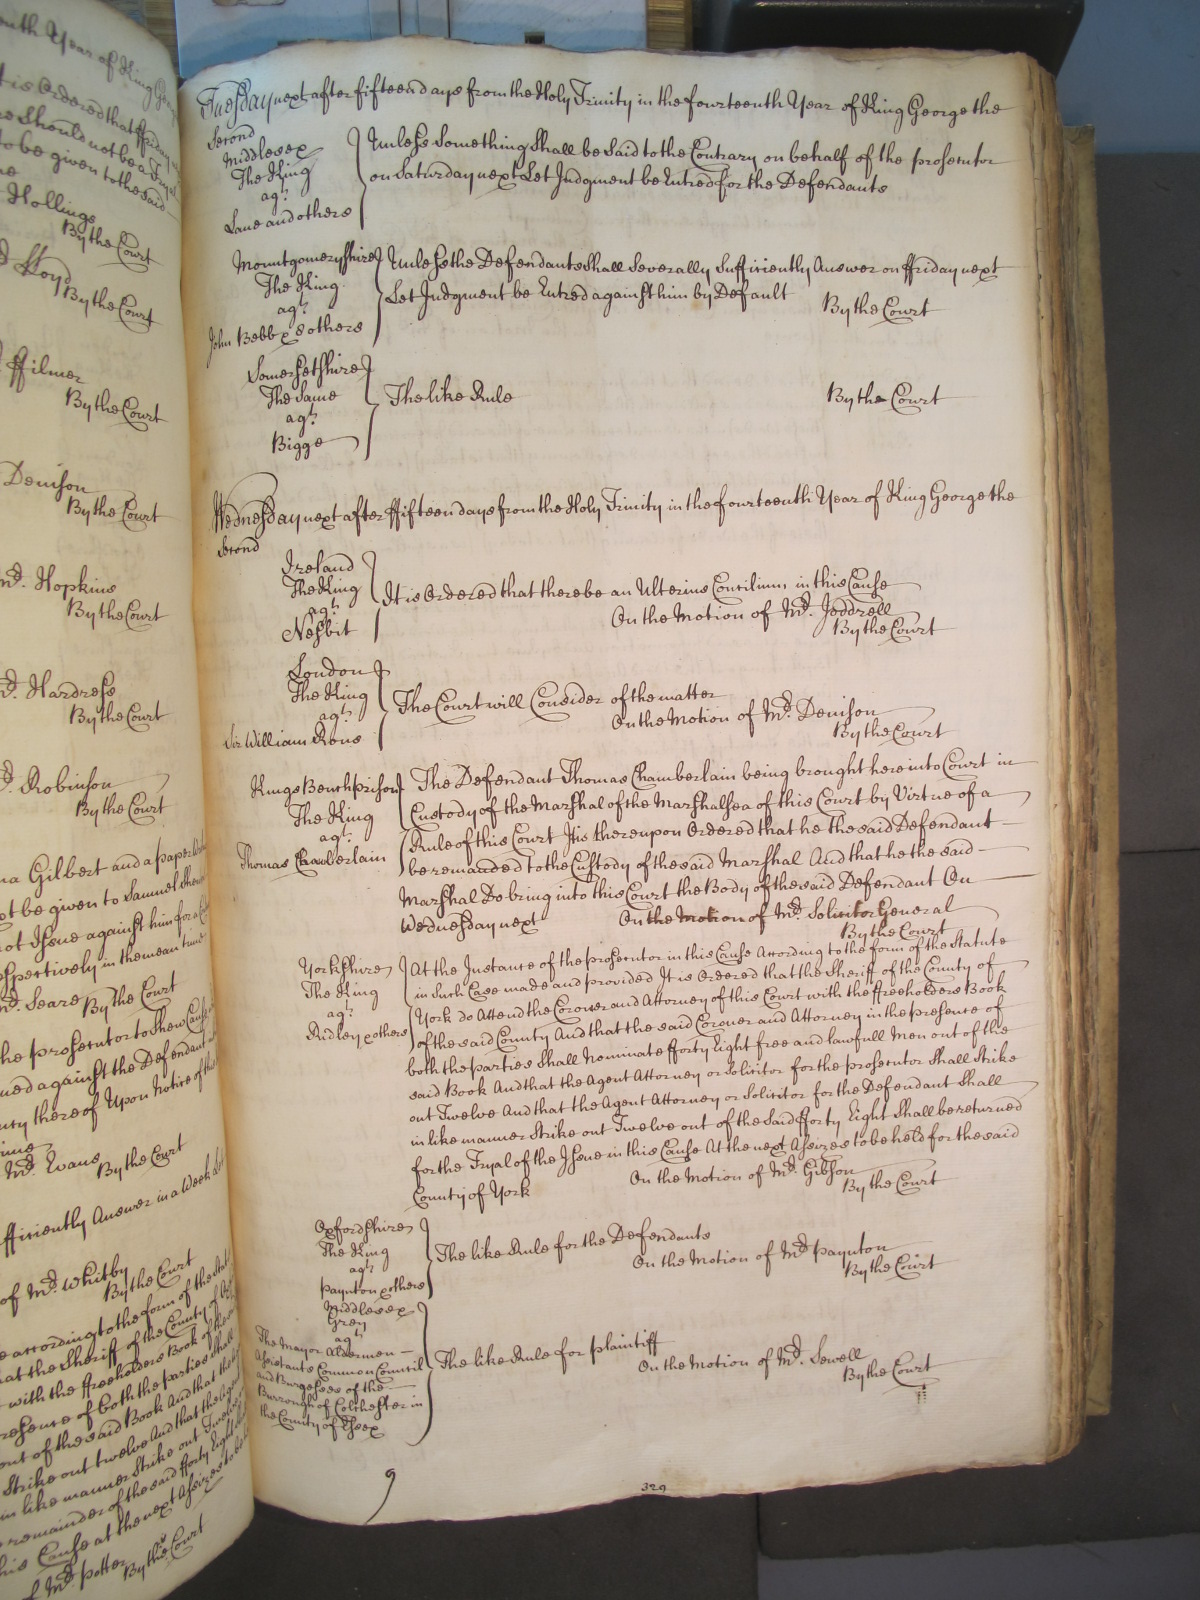 outh Year of King Geor
t is Ordered that ffriday
re Should not be a Tryal
to be given to the said
Hollings
By the Court
d Lloyd
By the Court
ffilmer
By the Court
Denison
By the Court
Mr. Hopkins
By the Court
Mr. Hardress
By the Court
Robinson
By the Court
na Gilbert and a paper
ot be given to Samuel
not Issue against him for
spectively in the mean time
Mr. Seare By the Court
he prosecutor to Shew Cause
ned against the Defendant
ury thereof Upon Notice of this
Mr. Evans
By the Court
fficiently Answer in a Week
of Mr. Whitby
By the Court
e according to the form of the Stat
hat the Sheriff of the County of
with the ffreeholders Book of the
resence of both the parties Shall
out of the said Book And that the
Strike out twelve And that the Agent
in like manner Strike out Twelve
remainder of the said fforty Eight
his Cause at the next Assizes to be
of Mr. potter
By the Court
Tuesday next after fifteen days from the Holy Trinity in the fourteenth Year of King George the
Second
Middlesex
The King
agt.
Lane and others
Unless Something Shall be Said to the Contrary on behalf of the prosecutor
on Saturday next Let Judgment be Entred for the Defendants
Mountgomeryshire
The King
agt.
John Bebb & others
Unless the Defendants Shall Severally Sufficiently Answer on ffriday next
Let Judgment be Entred against him by Default
By the Court
Somersetshire
The Same
agt.
Bigge
The like Rule
By the Court
Wednesday next after ffifteen days from the Holy Trinity in the fourteenth Year of King George the
Second
Ireland
The King
agt.
Nesbit
It is Ordered that there be an Ulterius Concilium in this Cause
On the Motion of Mr. Joddrell
By the Court
London
The King
agt.
Sir William Rous
The Court will Consider of the matter
On the Motion of Mr. Denison
By the Court
Kings Bench prison
The King
agt.
Thomas Chamberlain
The Defendant Thomas Chamberlain being brought here into Court in
Custody of the Marshal of the Marshalsea of this Court by Virtue of a
Rule of this Court It is thereupon Ordered that he the said Defendant
be remanded to the Custody of the said Marshal And that he the said
Marshal Do bring into this Court the Body of the said Defendant On
Wednesday next
On the Motion of Mr. Solicitor General
By the Court
Yorkshire
The King
agt.
Ridley & others
At the Instance of the prosecutor in this Cause According to the form of the Statute
in Such Case made and provided It is Ordered that the Sheriff of the County of
York do Attend the Coroner and Attorney of this Court with the ffreeholders Book
of the said County And that the said Coroner and Attorney in the presence of
both the parties Shall Nominate fforty Eight free and lawfull Men out of the
said Book And that the Agent Attorney or Solicitor for the prosecutor Shall Strike
out Twelve And that the Agent Attorney or Solicitor for the Defendant Shall
in like manner Strike out Twelve out of the Said fforty Eight Shall be returned
for the Tryal of the Issue in this Cause At the next Assizes to be held for the said
County of York
On the Motion of Mr. Gibson
By the Court
Oxfordshire
The King
agt.
paynton & others
The like Rule for the Defendants
On the Motion of Mr. paynton
By the Court
Middlesex
Grey
agt.
The Mayor Aldermen
Assistants Common Council
and Burgesses of the
Burrough of Colchester in
the County of Essex
The like Rule for plaintiff
On the Motion of Mr. Sewell
By the Court
9
329